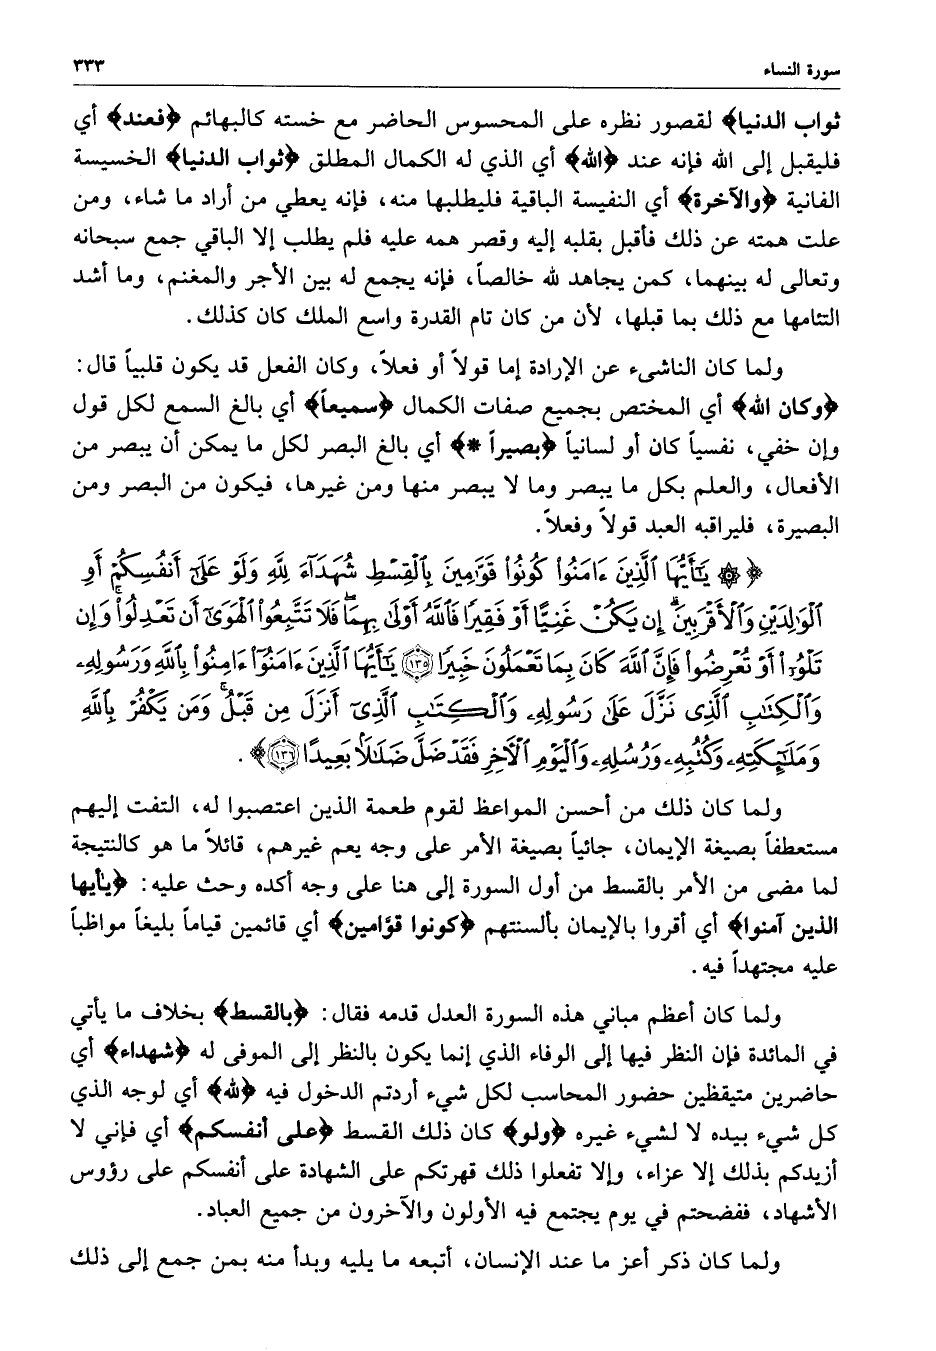 سورة النساء ٣٣٣
ثواب الدنيا﴾ لقصور نظره على المحسوس الحاضر مع خسته كالبهائم ﴿فعند﴾ أي
فليقبل إلى الله فإنه عند ﴿الله﴾ أي الذي له الكمال المطلق ﴿ثواب الدنيا﴾ الخسيسة
الفانية ﴿والآخرة﴾ أي النفيسة الباقية فليطلبها منه، فإنه يعطي من أراد ما شاء، ومن
علت همته عن ذلك فأقبل بقلبه إليه وقصر همه عليه فلم يطلب إلا الباقي جمع سبحانه
وتعالى له بينهما، كمن يجاهد لله خالصاً، فإنه يجمع له بين الأجر والمغنم، وما أشد
التئامها مع ذلك بما قبلها، لأن من كان تام القدرة واسع الملك كان كذلك.
ولما كان الناشىء عن الإرادة إما قولاً أو فعلاً، وكان الفعل قد يكون قلبياً قال:
﴿وكان الله﴾ أي المختص بجميع صفات الكمال ﴿سميعاً﴾ أي بالغ السمع لكل قول
وإن خفي، نفسياً كان أو لسانياً ﴿بصيراً *﴾ أي بالغ البصر لكل ما يمكن أن يبصر من
الأفعال، والعلم بكل ما يبصر وما لا يبصر منها ومن غيرها، فيكون من البصر ومن
البصيرة، فليراقبه العبد قولاً وفعلاً.
﴿۞ يَٰٓأَيُّهَا ٱلَّذِينَ ءَامَنُوا۟ كُونُوا۟ قَوَّٰمِينَ بِٱلْقِسْطِ شُهَدَآءَ لِلَّهِ وَلَوْ عَلَىٰٓ أَنفُسِكُمْ أَوِ
ٱلْوَٰلِدَيْنِ وَٱلْأَقْرَبِينَ ۚ إِن يَكُنْ غَنِيًّا أَوْ فَقِيرًا فَٱللَّهُ أَوْلَىٰ بِهِمَا ۖ فَلَا تَتَّبِعُوا۟ ٱلْهَوَىٰٓ أَن تَعْدِلُوا۟ ۚ وَإِن
تَلْوُۥٓا۟ أَوْ تُعْرِضُوا۟ فَإِنَّ ٱللَّهَ كَانَ بِمَا تَعْمَلُونَ خَبِيرًا ١٣٥ يَٰٓأَيُّهَا ٱلَّذِينَ ءَامَنُوٓا۟ ءَامِنُوا۟ بِٱللَّهِ وَرَسُولِهِۦ
وَٱلْكِتَٰبِ ٱلَّذِى نَزَّلَ عَلَىٰ رَسُولِهِۦ وَٱلْكِتَٰبِ ٱلَّذِىٓ أَنزَلَ مِن قَبْلُ ۚ وَمَن يَكْفُرْ بِٱللَّهِ
وَمَلَٰٓئِكَتِهِۦ وَكُتُبِهِۦ وَرُسُلِهِۦ وَٱلْيَوْمِ ٱلْءَاخِرِ فَقَدْ ضَلَّ ضَلَٰلًۢا بَعِيدًا ١٣٦﴾.
ولما كان ذلك من أحسن المواعظ لقوم طعمة الذين اعتصبوا له، التفت إليهم
مستعطفاً بصيغة الإيمان، جائياً بصيغة الأمر على وجه يعم غيرهم، قائلاً ما هو كالنتيجة
لما مضى من الأمر بالقسط من أول السورة إلى هنا على وجه أكده وحث عليه: ﴿يٰأيها
الذين آمنوا﴾ أي أقروا بالإيمان بألسنتهم ﴿كونوا قوّامين﴾ أي قائمين قياماً بليغاً مواظباً
عليه مجتهداً فيه.
ولما كان أعظم مباني هذه السورة العدل قدمه فقال: ﴿بالقسط﴾ بخلاف ما يأتي
في المائدة فإن النظر فيها إلى الوفاء الذي إنما يكون بالنظر إلى الموفى له ﴿شهداء﴾ أي
حاضرين متيقظين حضور المحاسب لكل شيء أردتم الدخول فيه ﴿لله﴾ أي لوجه الذي
كل شيء بيده لا لشيء غيره ﴿ولو﴾ كان ذلك القسط ﴿على أنفسكم﴾ أي فإني لا
أزيدكم بذلك إلا عزاء، وإلا تفعلوا ذلك قهرتكم على الشهادة على أنفسكم على رؤوس
الأشهاد، ففضحتم في يوم يجتمع فيه الأولون والآخرون من جميع العباد.
ولما كان ذكر أعز ما عند الإنسان، أتبعه ما يليه وبدأ منه بمن جمع إلى ذلك